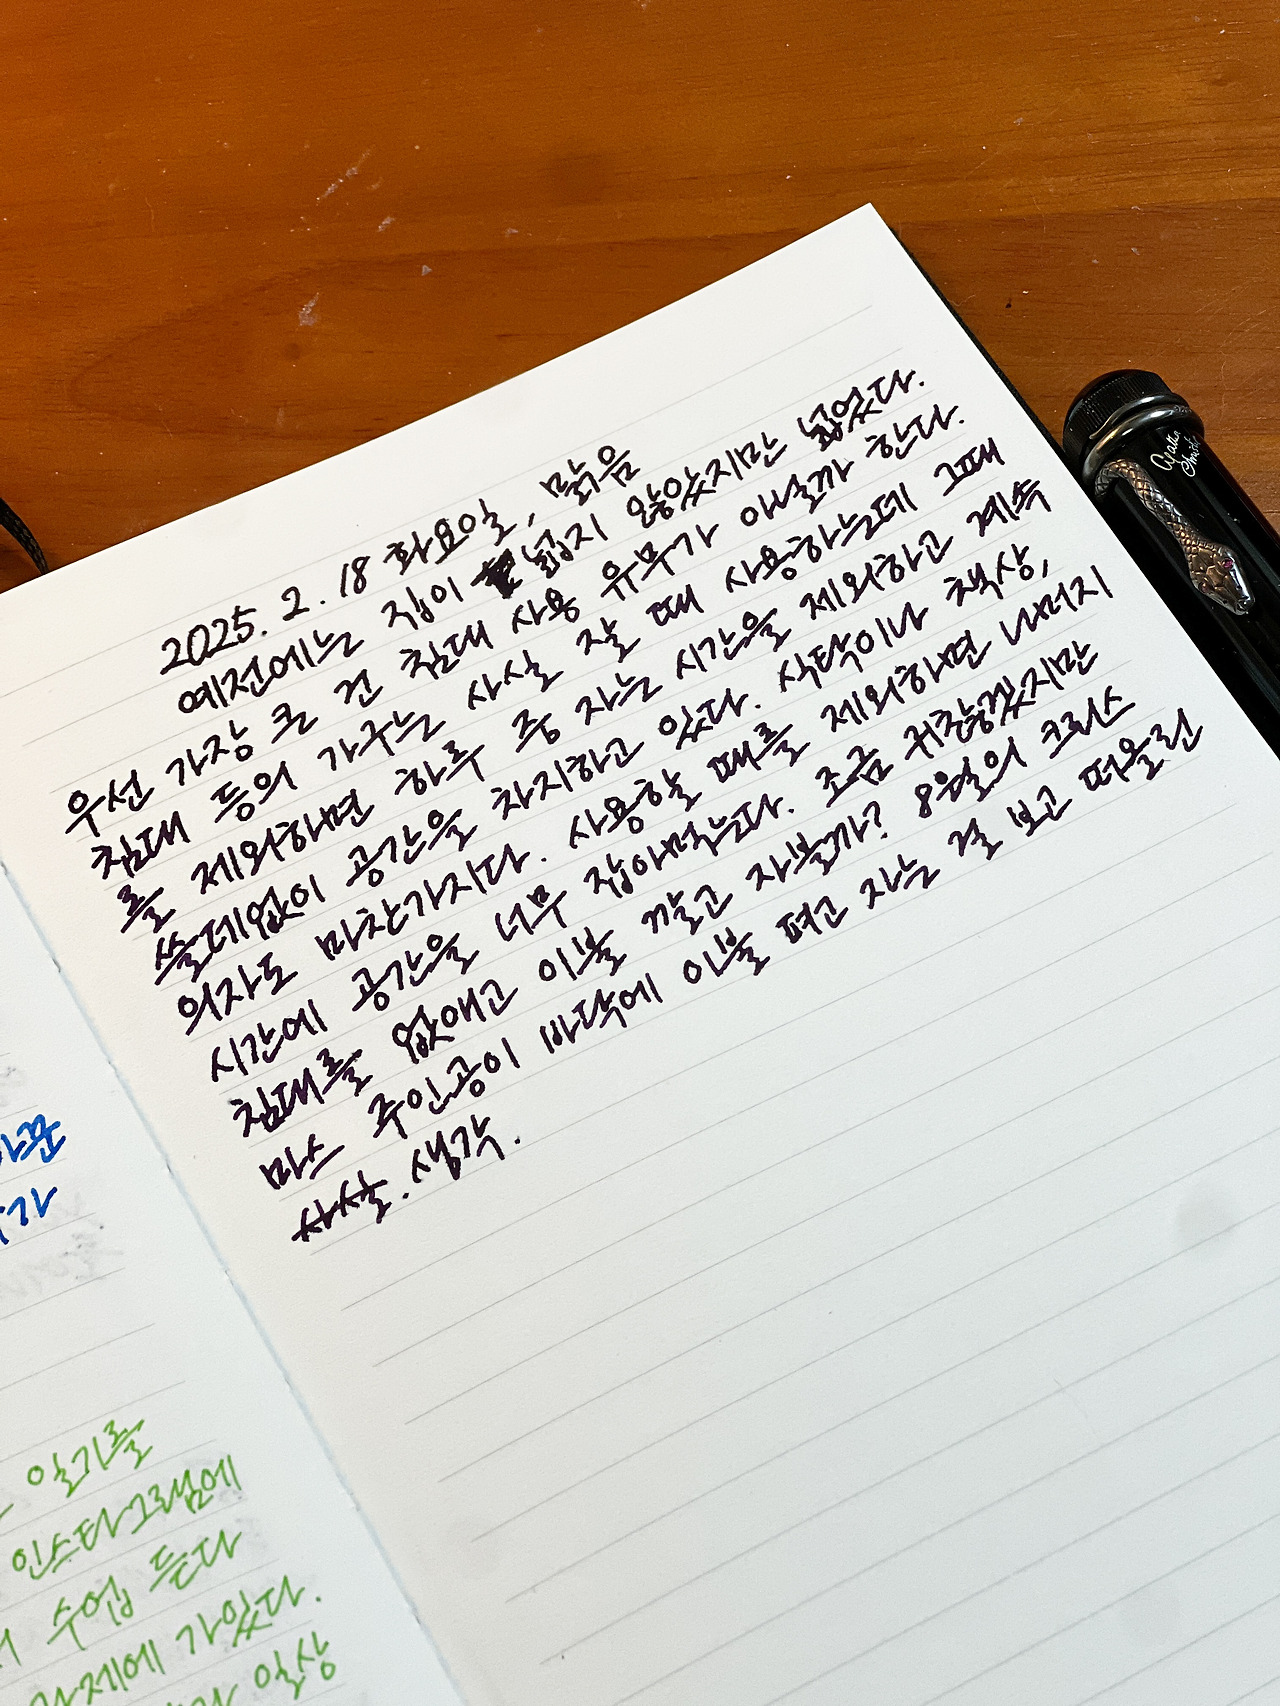 2025. 2. 18 화요일, 맑음
예전에는 집이 넓지 않았지만 넓었다.
우선 가장 큰 건 침대 사용 유무가 아닐까 한다.
침대 등의 가구는 사실 잘 때 사용하는데 그때
를 제외하면 하루 중 자는 시간을 제외하고 계속
쓸데없이 공간을 차지하고 있다. 식탁이나 책상,
의자도 마찬가지다. 사용할 때를 제외하면 나머지
시간에 공간을 너무 잡아먹는다. 조금 귀찮겠지만
침대를 없애고 이불 깔고 자볼까? 8월의 크리스
마스 주인공이 바닥에 이불 펴고 자는 걸 보고 떠올린
사실. 생각.
일기를
인스타그램에
수업 듣다
가있다.
일상
Agatha
Christie